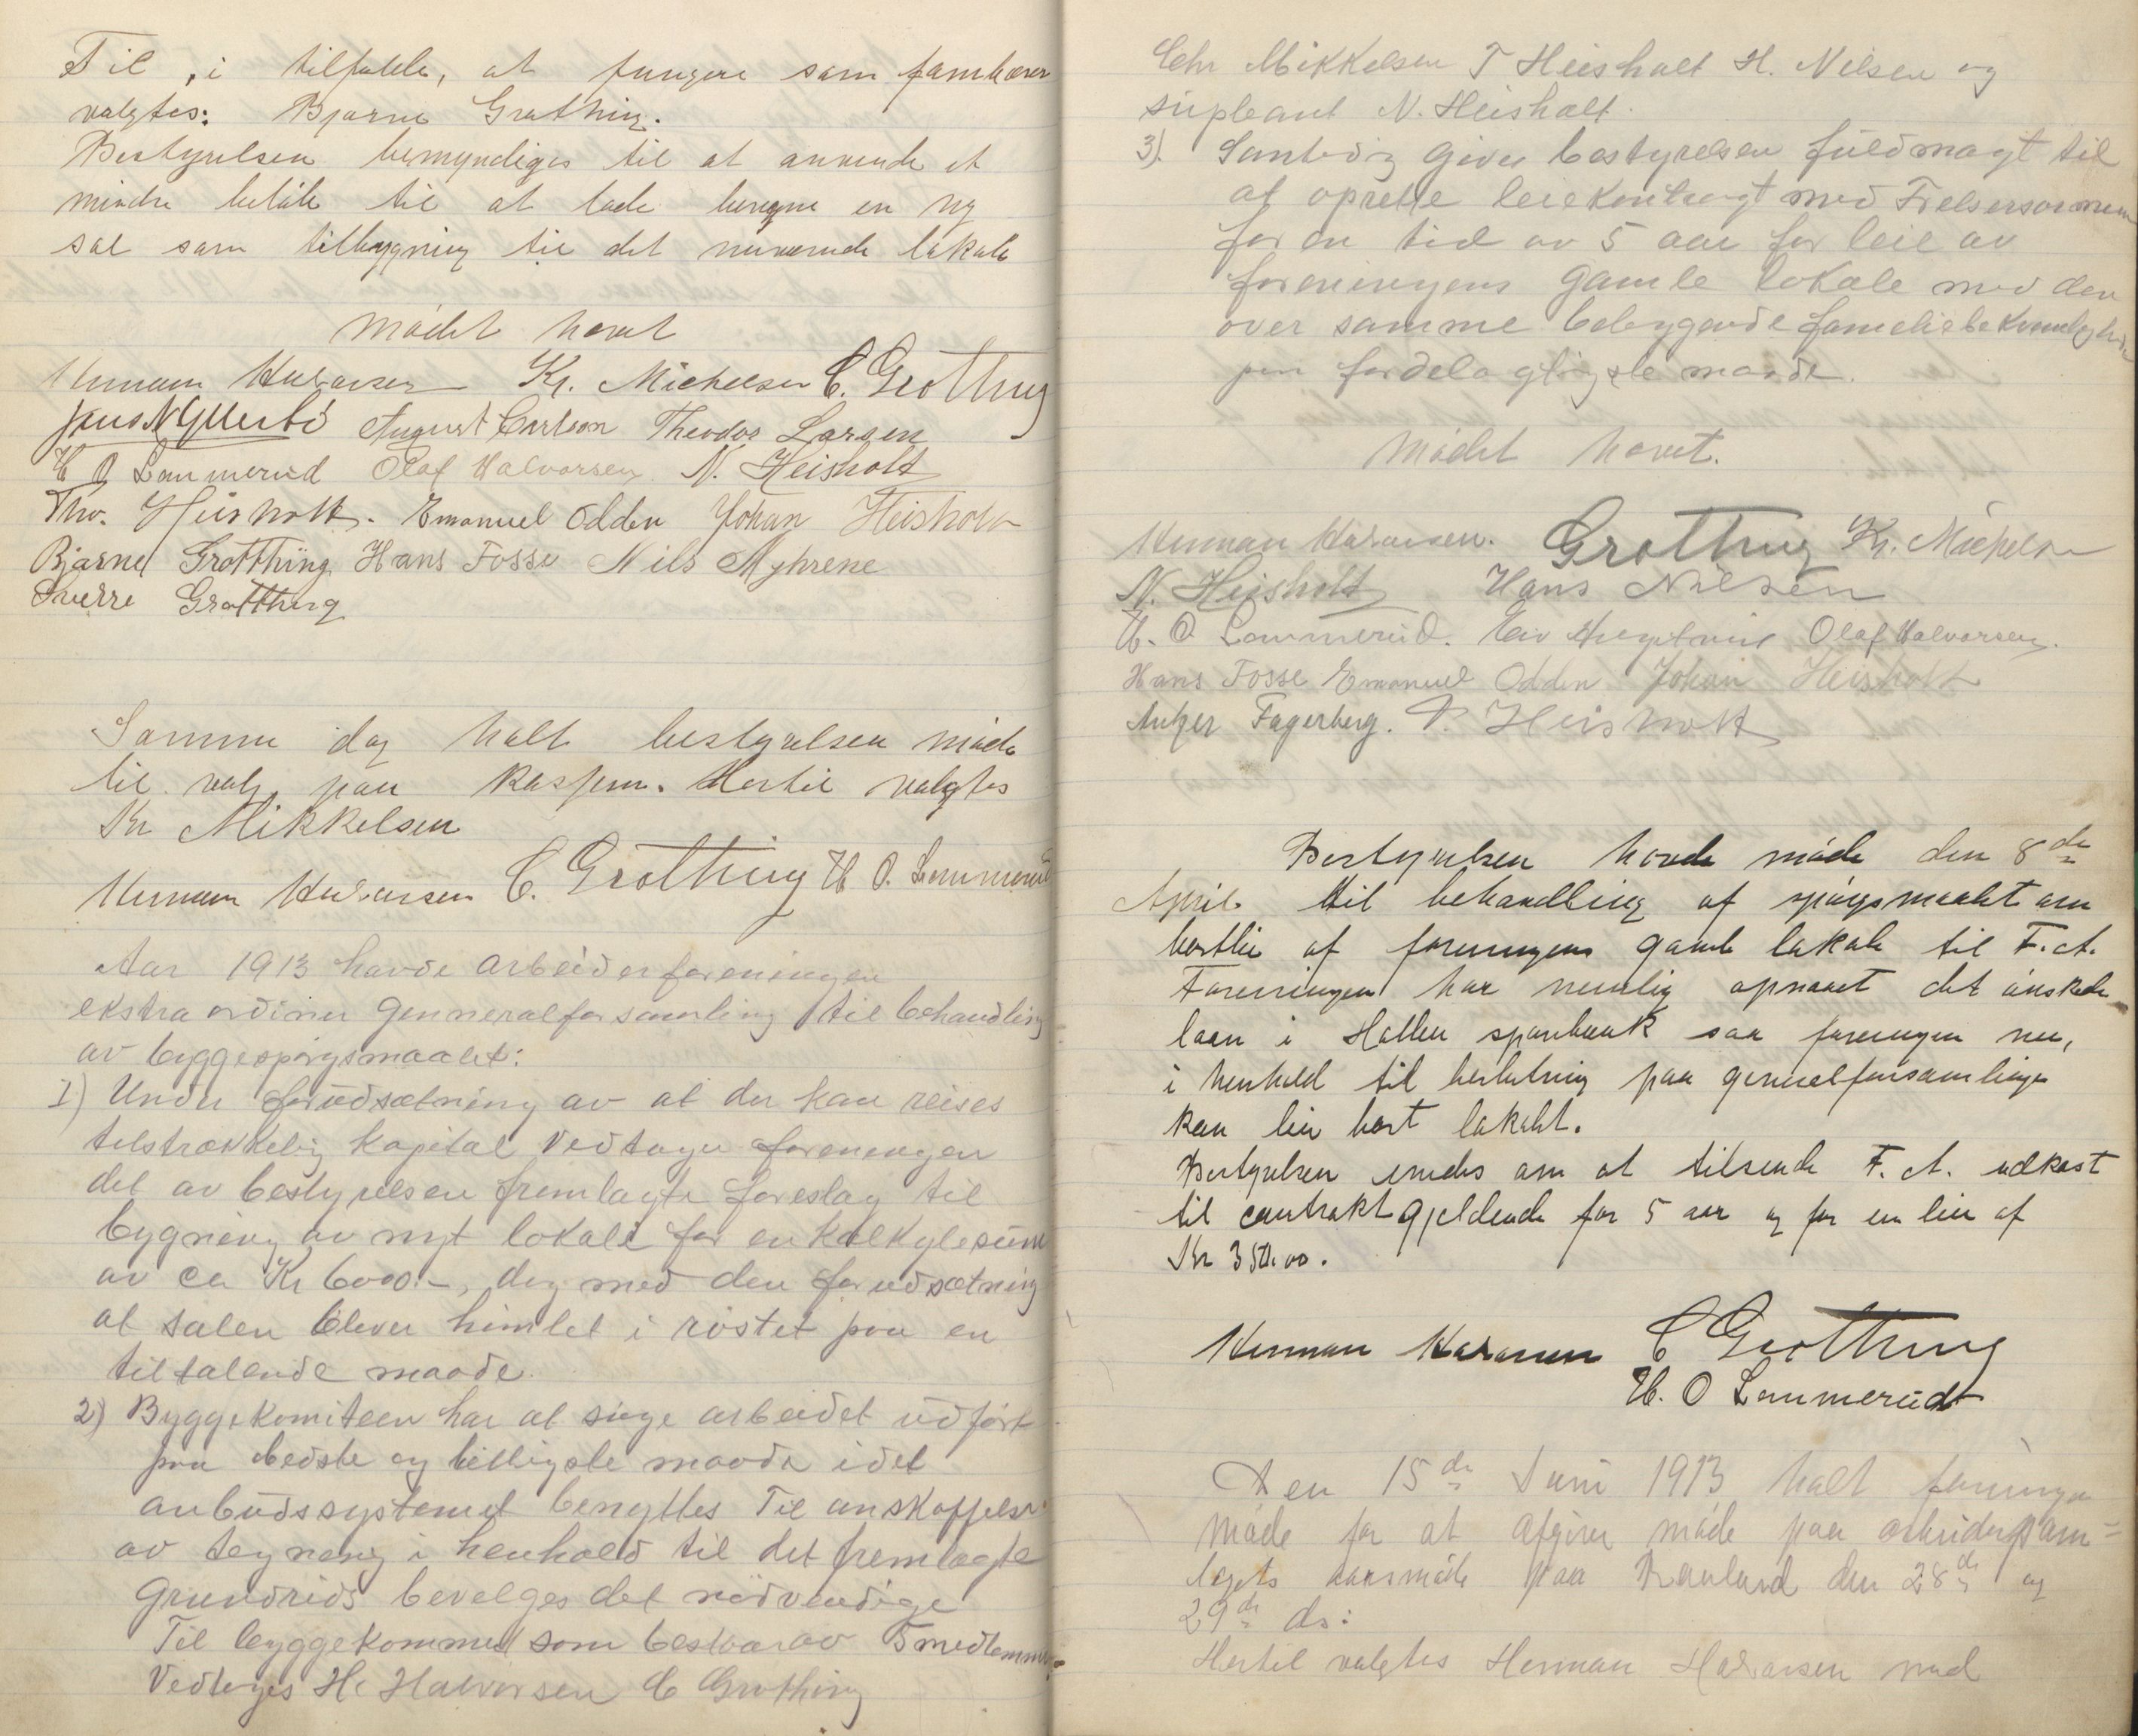 Til, i tilfælde, at fungere som fanebærer
valgtes: Bjarne Grøthing.
Bestyrelsen bemyndiges til at anvende et
mindre beløb til at lade beregne en ny
sal som tilbygning til det nuværende lokale
Mødet hævet
Herman Halvorsen Kr. Michelsen C. Grøthing
August Carlson Theodor Larsen
H O Lammerud Olaf Halvorsen N. Heisholt
Tho. Heisholt. Emanuel Odden Johan Heisholt
Bjarne Grøtthing Hans Fosse Nils Myhrene
Sverre Grøtthing
Samme dag holt bestyrelsen møde
til valg paa kasserer. Hertil valgtes
Kr Mikkelsen
Herman Halvorsen C. Grøthing H O. Lammerud
Aar 1913 havde arbeiderforeningen
ekstraordinær genneralforsamling til behandling
av byggespørgsmaalet:
1) Under forudsætning av at der kan reises
telstrækkelig kapital vedtager foreningen
det av bestyrelsen fremlagte foreslag til
bygning av nyt lokale for en kalkylesum
av ca Kr 6000.-, dog med den forudsætning
at salen blever himlet i røstet paa en
tiltalende maade.
2) Byggekomiteen har at søge arbeidet udført
paa bedste og billigste maade idet
anbudssystemet benyttes Til anskaffelse
av tegning i henhold til det fremlagte
Grundrids bevelges det nødvendige
Til byggekommed som bestaar av 5 medlemmer
Vedteges H. Halvorsen C Grøthing
Chr Mikkelsen T Heisholt H. Nilsen og
supleant N. Heisholt.
3). Samtidig giver bestyrelsen fuldmagt til
at oprette leiekontragt med Frelsesarmeen
for en tid av 5 aar for leie av
foreningens gamle lokale med den
over samme bebyggende familiebekvemlighed
paa fordelagtigste maade.
Mødet hævet.
Herman Halvorsen. Grøthing Kr. Michelsen
N. Heisholt Hans Nilsen
H. O Lammerud. Olaf Halvorsen.
Hans Fosse Emanuel Odden Johan Heisholt
Fagerberg. T. Heisholt
Bestyrelsen havde møde den 8de
April til behandling af spørgsmaalet om
bortleie af foreningens gamle lokale til F.A.
Foreningen har nemlig opnaaet det ønskede
laan i Hollen sparebank saa foreningen nu,
i henhold til beslutning paa generalforsamlingen
kan leie bort lokalet.
Bestyrelsen enedes om at tilsende F. A. udkast
til contrakt gjeldende for 5 aar og for en leie af
Kr 350.00.
Herman Halvorsen C Grøthing
H. O Lammerud
Den 15de Juni 1913 holt foreningen
møde for at afgive møde paa arbeidersam=
lagets aarsmøde paa den 28de og
29de ds:
Hertil valgtes Herman Halvorsen med